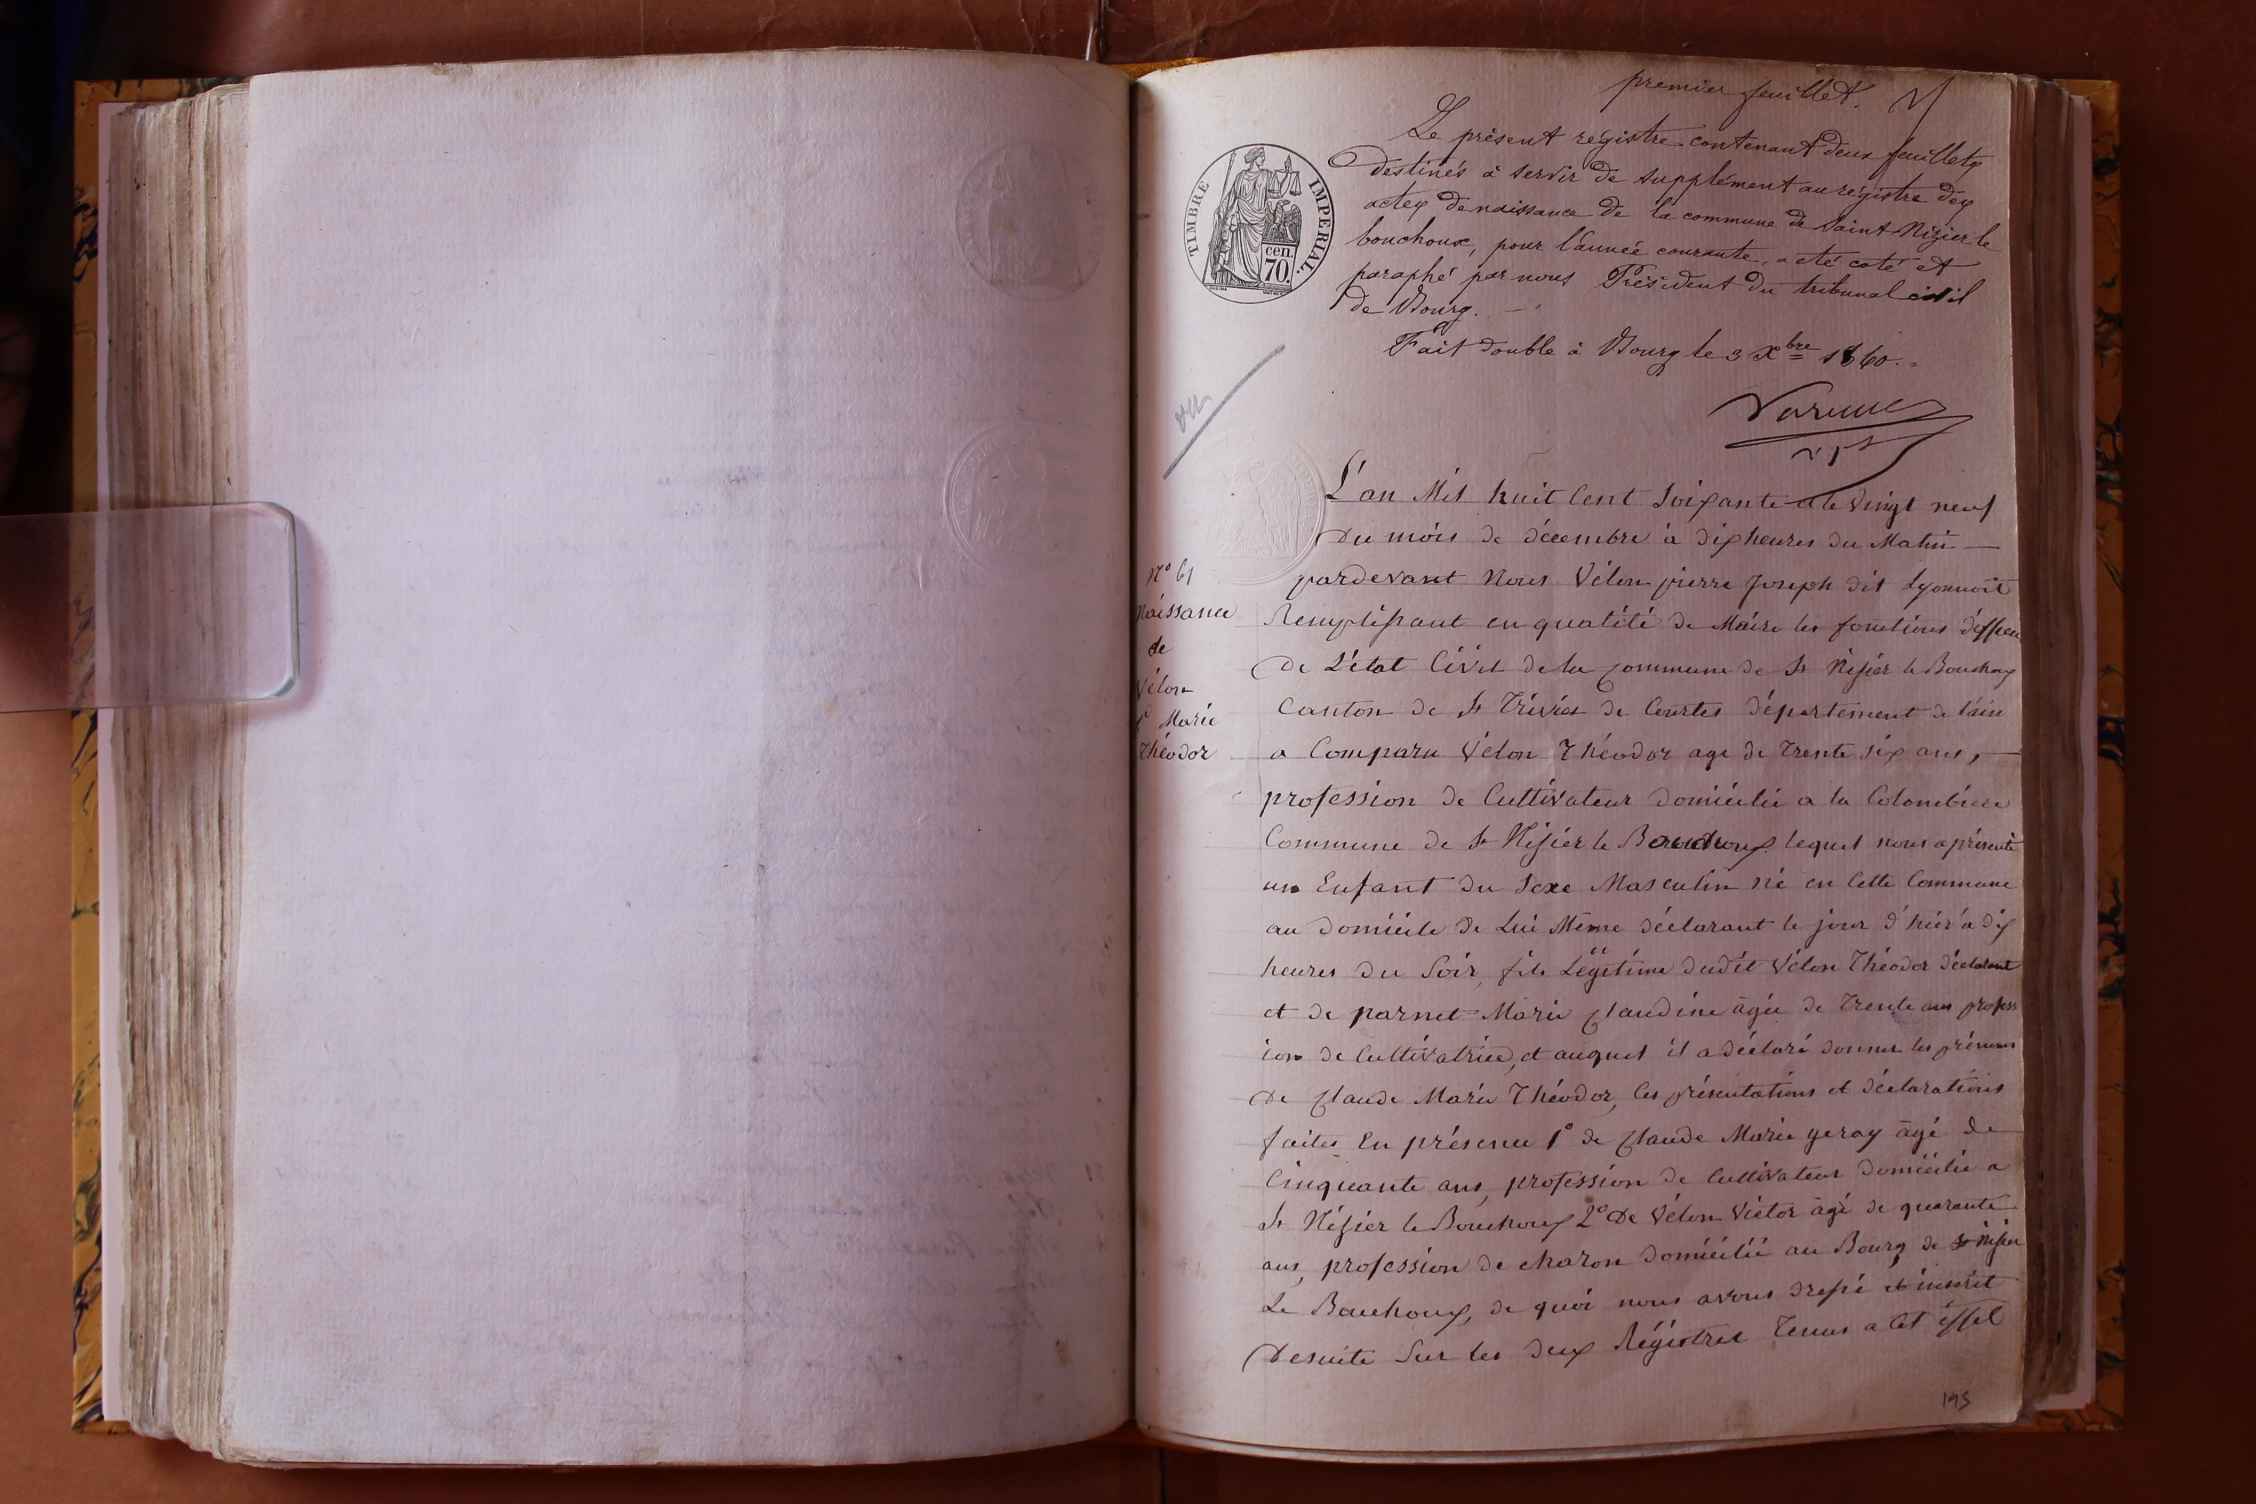 premier feuillet.
Le présent registre contenant deux feuillets
destinés à servir de supplément au registre des
actes de naissance de la commune de Saint Nizier le
bouchoux, pour l'année courante, a été coté et
paraphé par nous Président du tribunal civil
de Bourg.
Fait double à Bourg le 3 Xbre 1860.
TIMBRE IMPERIAL.
cen.
70.
vu
L'an Mil huit Cent Soixante et le Vingt neuf
Du mois de décembre à dix heures du Matin
pardevant Nous Vélon pierre Joseph dit Lyonnoit
Remplissant en qualité de Maire les fonctions d'
De L'état Civil de la Commune de St Nisier le Bouchoux
Canton de St Trivier de Courtes département de l'ain
a Comparu Vélon Théodor age de Trente Six ans,
profession de Cultivateur Domicilié a la Colombière
Commune de St Nisier le Bouchoux lequel nous a présenté
un Enfant du Sexe Masculin né en Cette Commune
au Domicile de Lui Même déclarant le jour d'hier à dix
heures du Soir, fils Légitime dudit Vélon Théodor déclarant
et de parnet = Marie Claudine âgée de Trente ans profess
ion de Cultivatrice, et auquel il a déclaré donner les prénoms
De Claude Marie Théodor, les présentations et déclarations
faites En présence 1° de Claude Marie geray âgé de
Cinquante ans, profession de Cultivateur Domicilié a
St Nisier le Bouchoux 2° De Vélon Victor âgé de quarante
ans, profession de charon Domicilié au Bourg de St Nisier
Le Bouchoux, de quoi nous avons dressé et inscrit
Desuite Sur les deux Régistres Tenus a Cet éffet
N° 61
Naissance
de
Vélon
Marie
Théodor
193